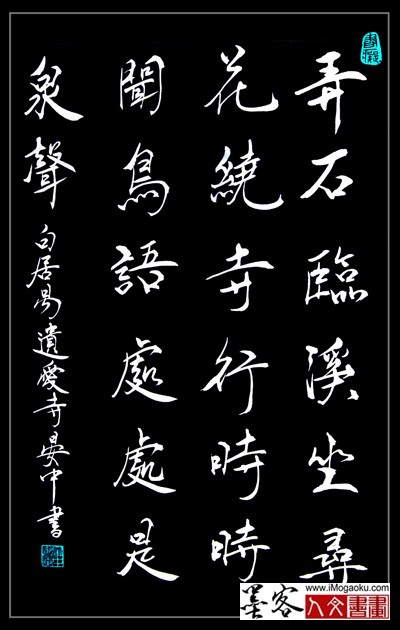 弄石臨溪坐尋
花繞寺行時時
聞鳥語處處是
泉聲 白居易遺愛寺晏中書
www.iMogaoku.com
墨客 人文書畫